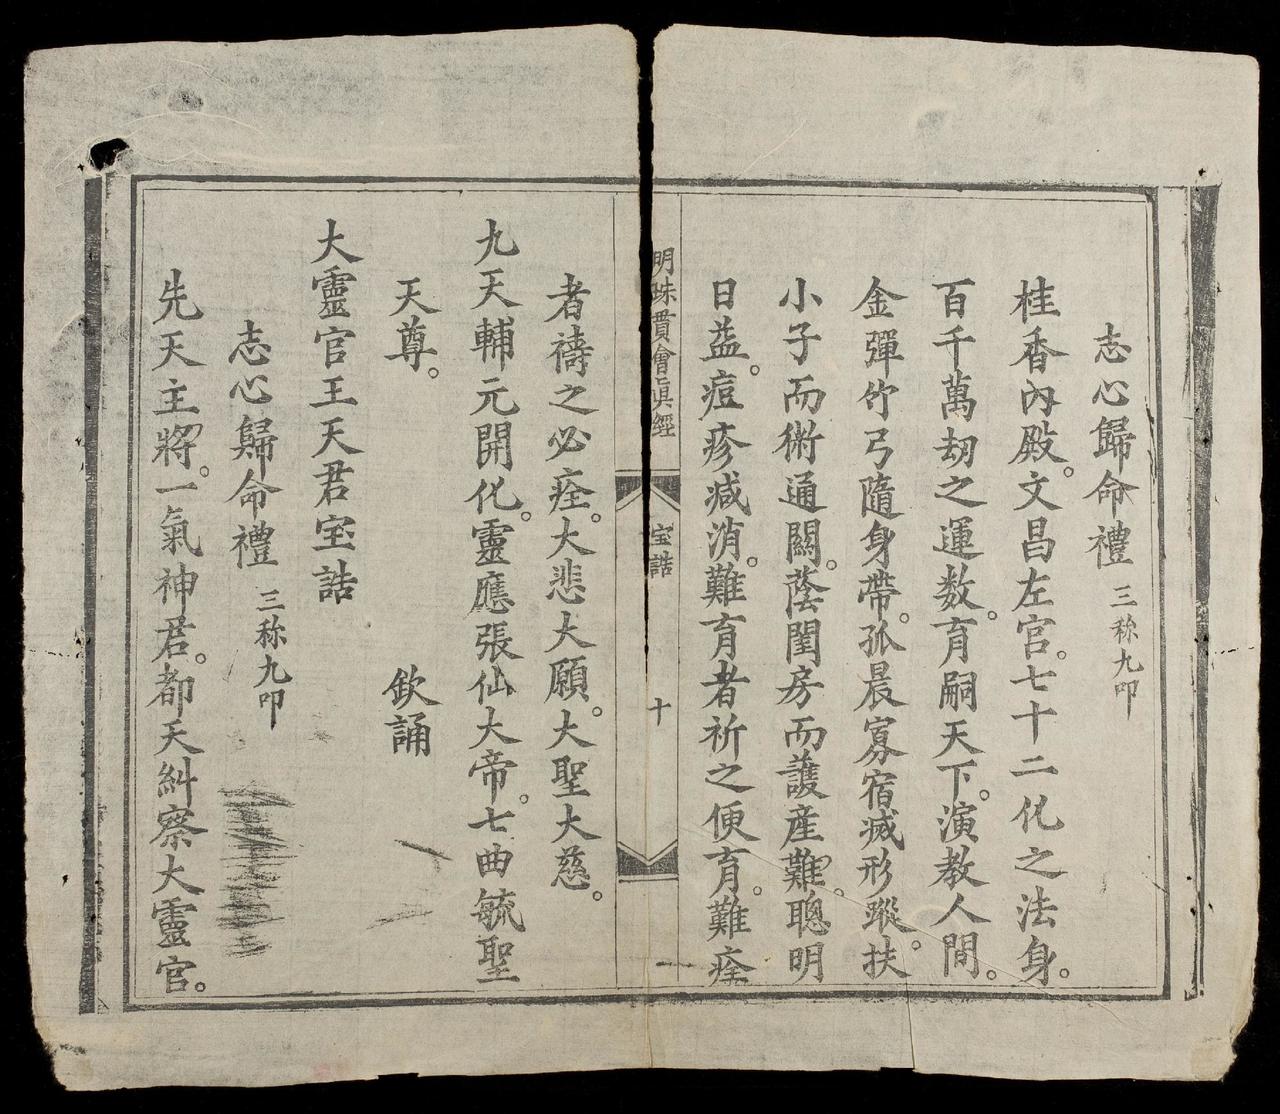 志心歸命禮 三称九叩
桂香內殿。文昌左宮。七十二化之法身。
百千萬劫之運数。育嗣天下。演教人間。
金彈竹弓隨身帶。孤晨寡宿滅形蹤。扶
小子而術通關。蔭閨房而護產難。聰明
日益。痘疹減消。難育者祈之便育。難痊
明珠貫會眞經 宝誥 十
者禱之必痊。大悲大願。大聖大慈。
九天輔元開化。靈應張仙大帝。七曲毓聖
天尊。 欽誦
大靈官王天君宝誥
志心歸命禮 三称九叩
先天主將。一氣神君。都天糾察大靈官。